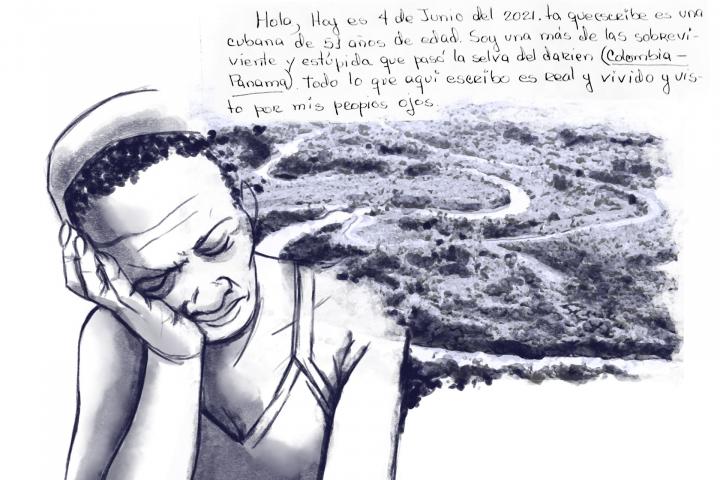 Hola, Hoy es 4 de Junio del 2021. La que escribe es una
cubana de 53 años de edad. Soy una más de las sobrevi-
viente y estúpida que pasó la selva del darien (Colombia -
Panama). Todo lo que aquí escribo es real y vivido y vis-
to por mis propios ojos.